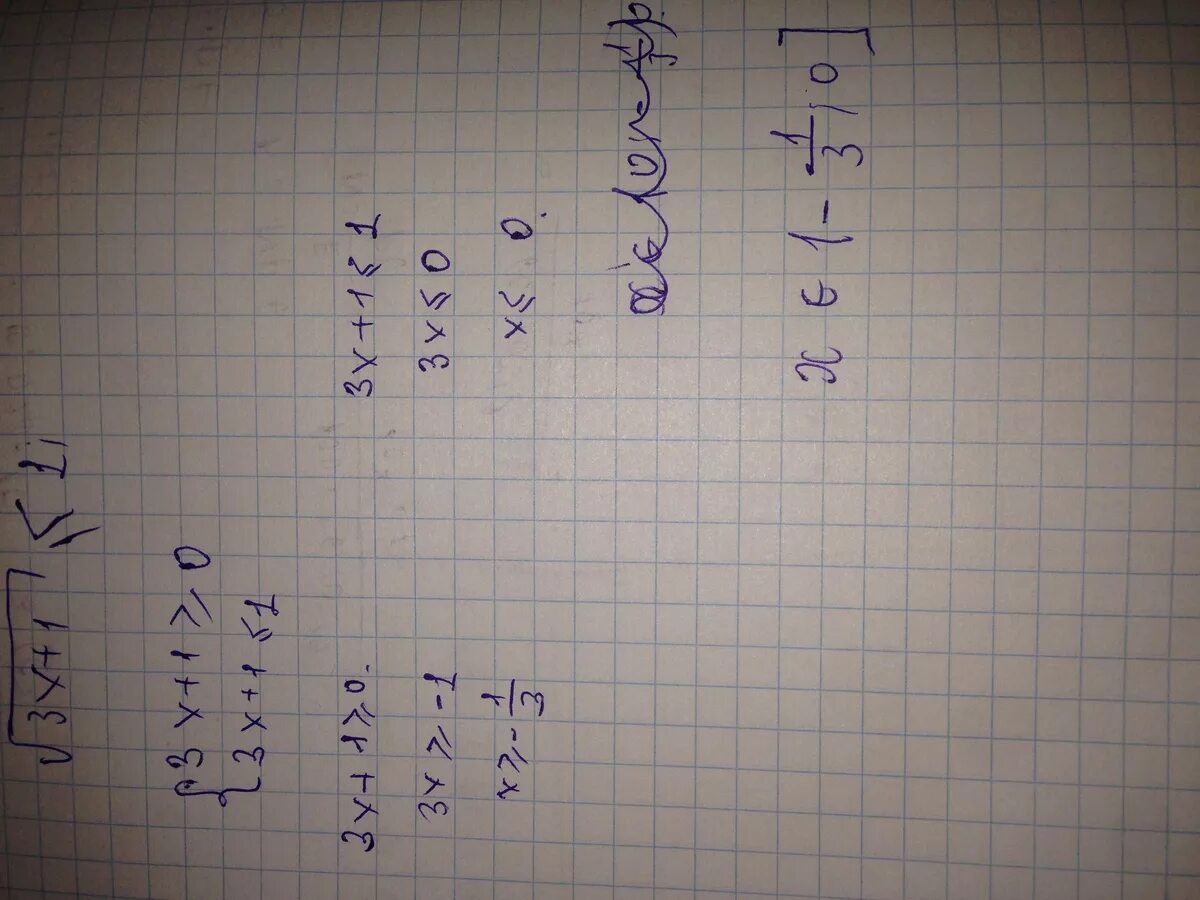 √(3x+1) ≤ 1;
{ 3x+1 ≥ 0
{ 3x+1 ≤ 1
3x+1 ≥ 0.
3x ≥ -1
x ≥ -1/3
3x+1 ≤ 1
3x ≤ 0
x ≤ 0.
x ∈ (-1/3; 0]